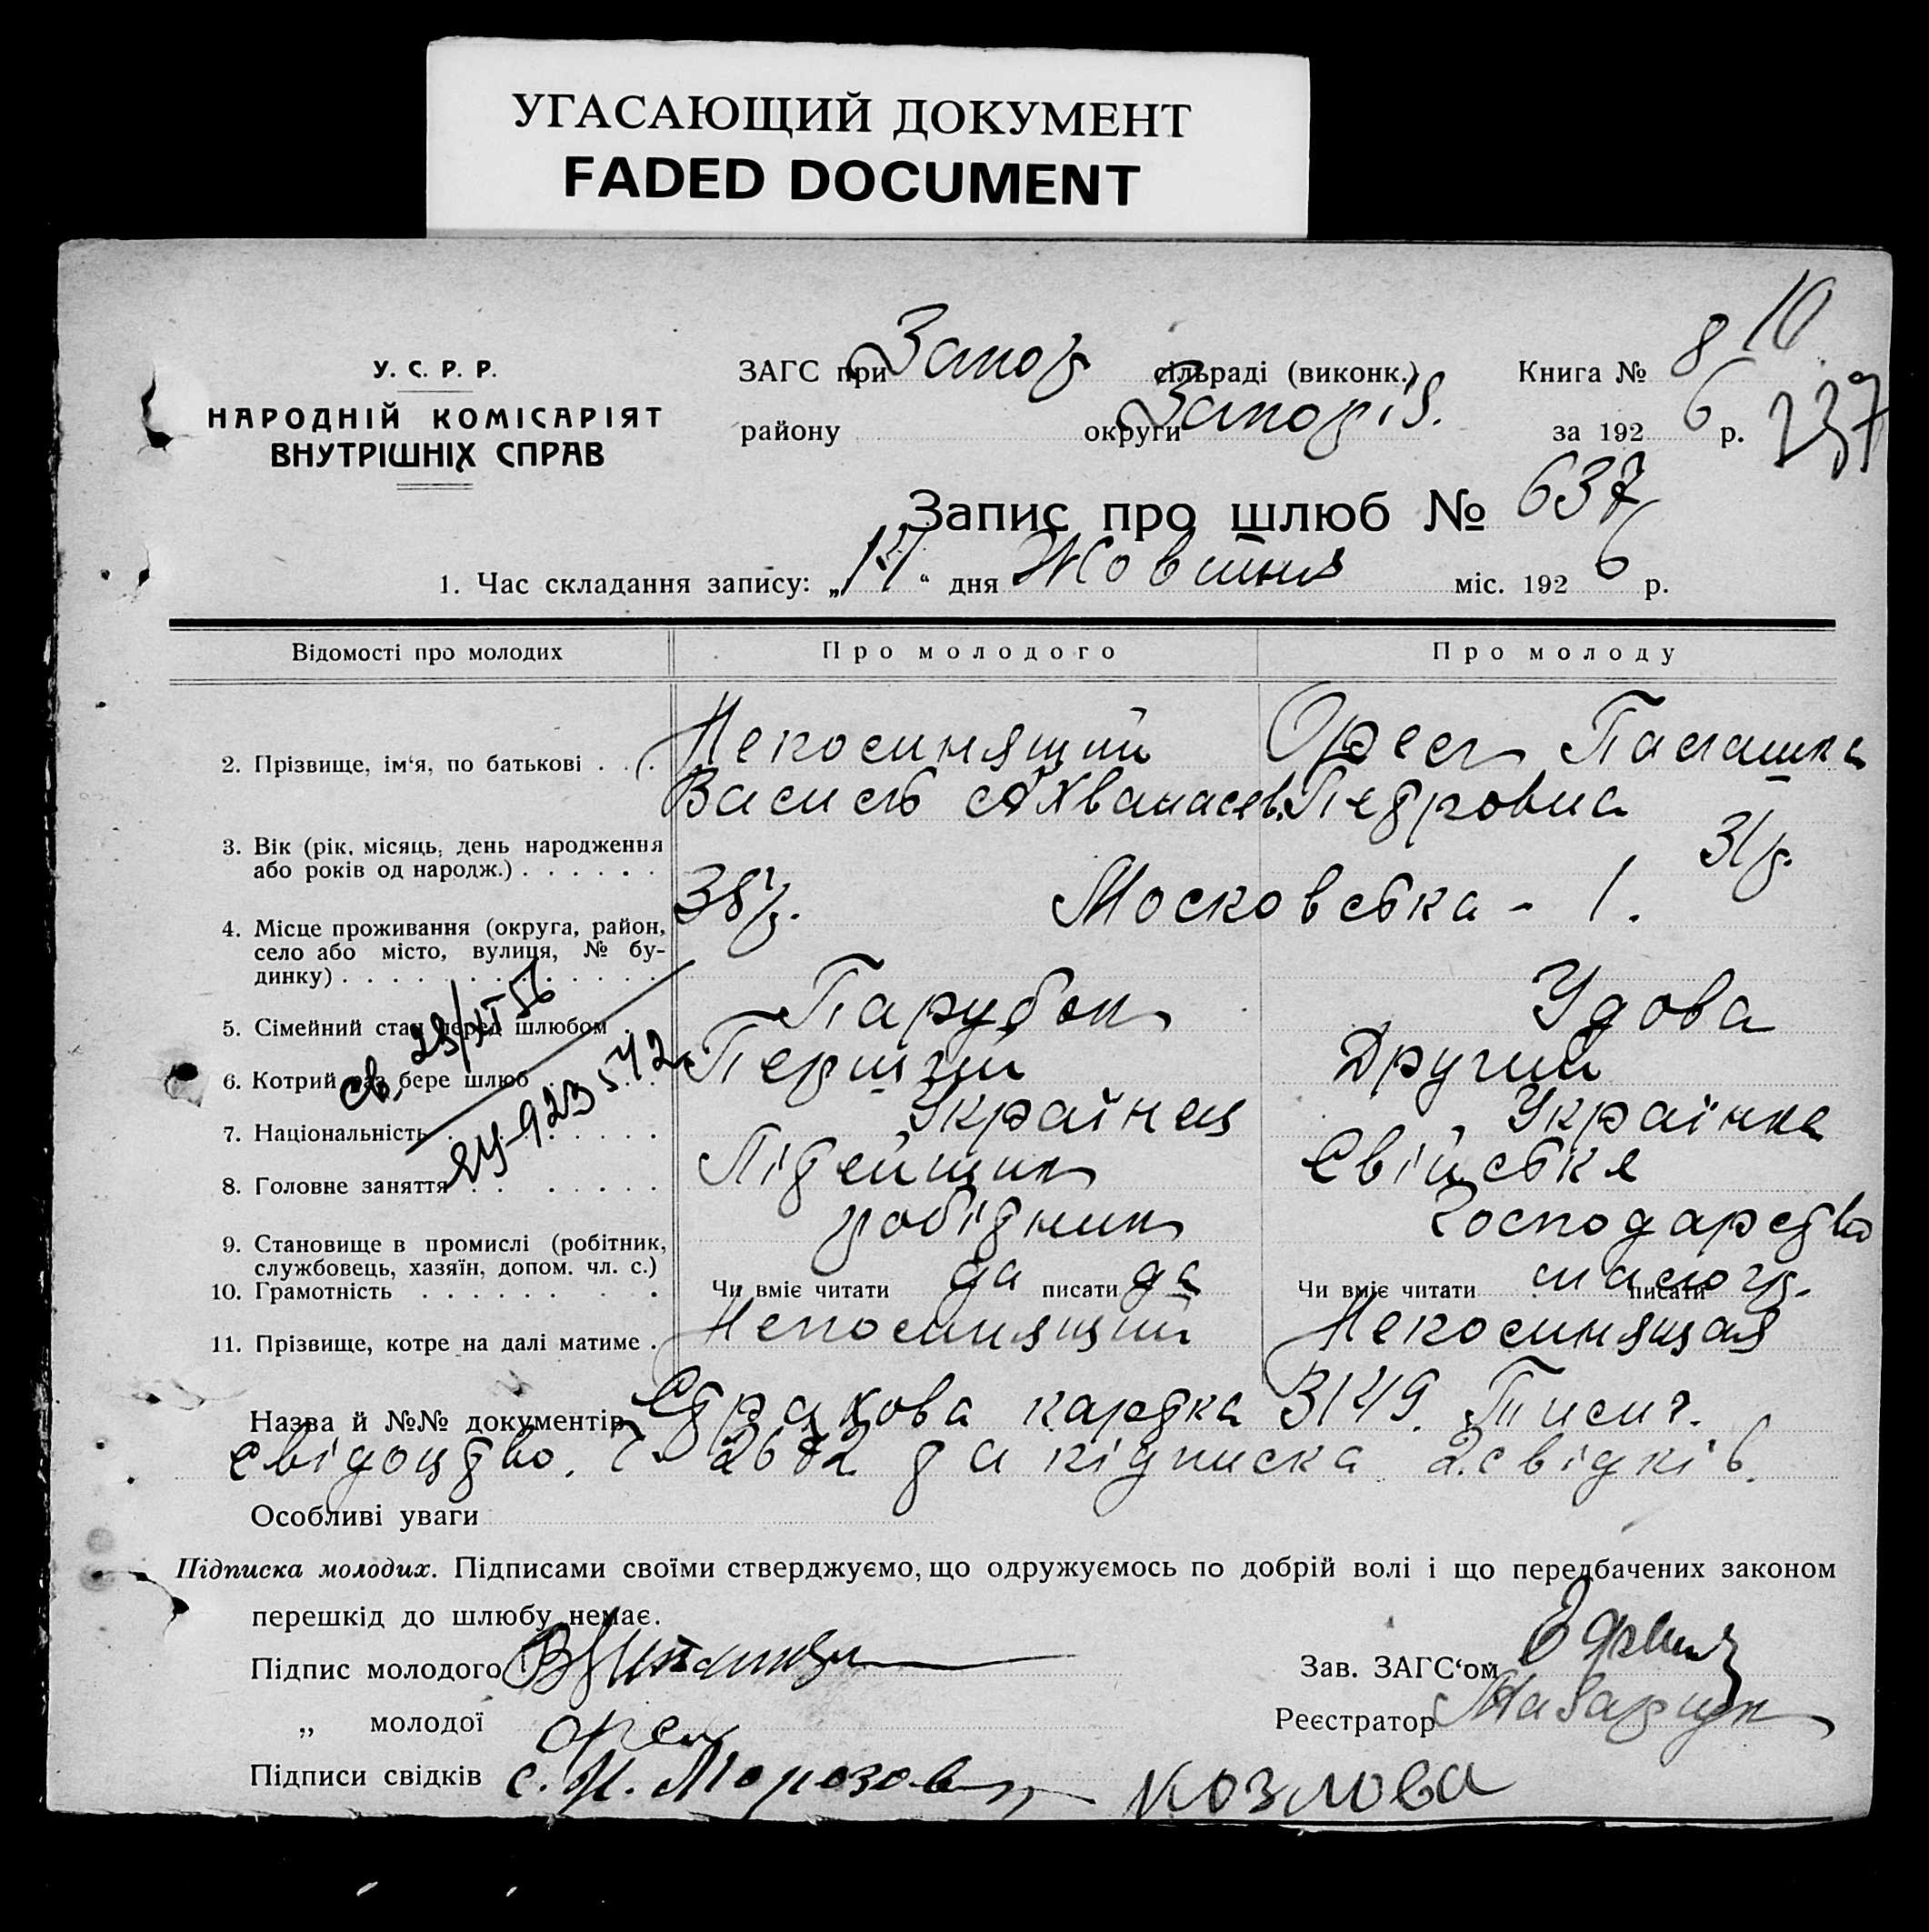 УГАСАЮЩИЙ ДОКУМЕНТ
FADED DOCUMENT
У. С. Р. Р.
НАРОДНІЙ КОМІСАРІЯТ
ВНУТРІШНІХ СПРАВ
ЗАГС при Запор сільраді (виконк.) Книга № 8 10
району округи Запоріз. за 192 6 р. 237
Запис про шлюб № 637
1. Час складання запису: „ “ дня Жовтня міс. 192 6 р.
Відомості про молодих Про молодого Про молоду
2. Прізвище, ім‘я, по батькові . . . Непосинящий Орел Палашка
Василь Ахванасєв. Петровна
3. Вік (рік, місяць, день народження
або років од народж.) . . . . . . 38 р. 31 р.
4. Місце проживання (округа, район,
село або місто, вулиця, № бу-
динку) . . . . . . . . . . . . . Московська - 1.
5. Сімейний стан перед шлюбом . Парубок Удова
6. Котрий раз бере шлюб . . . . . Перший Другий
7. Національність . . . . . . . . Українец Українка
8. Головне заняття . . . . . . . . Літейщик Свійське
9. Становище в промислі (робітник,
службовець, хазяїн, допом. чл. с.) робітник господарство
10. Грамотність . . . . . . . . Чи вміє читати да писати да Чи вміє читати писати малогр.
11. Прізвище, котре на далі матиме . Непосинящий Непосинящая
св. 23/XI 56
ЯЦ-923542
Назва й №№ документів Страхова картка 3149. Тисч.
свідоцтво. 2672 та підписка 2 свідків.
Особливі уваги
Підписка молодих. Підписами своїми стверджуємо, що одружуємось по добрій волі і що передбачених законом
перешкід до шлюбу немає.
Підпис молодого Зав. ЗАГС‘ом
„ молодої Орел Реєстратор Назарчук
Підписи свідків с. И. Морозов Козлова